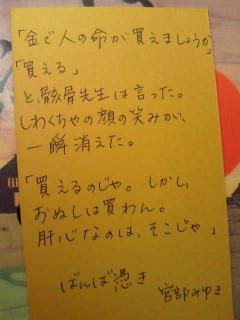 「金で人の命が買えましょうか」
「買える」
と、骸骨先生は言った。
しわくちゃの顔の笑みが、
一瞬消えた。
「買えるのじゃ。しかし、
おぬしは買わん。
肝心なのは、そこじゃ」
ばんば憑き
宮部みゆき